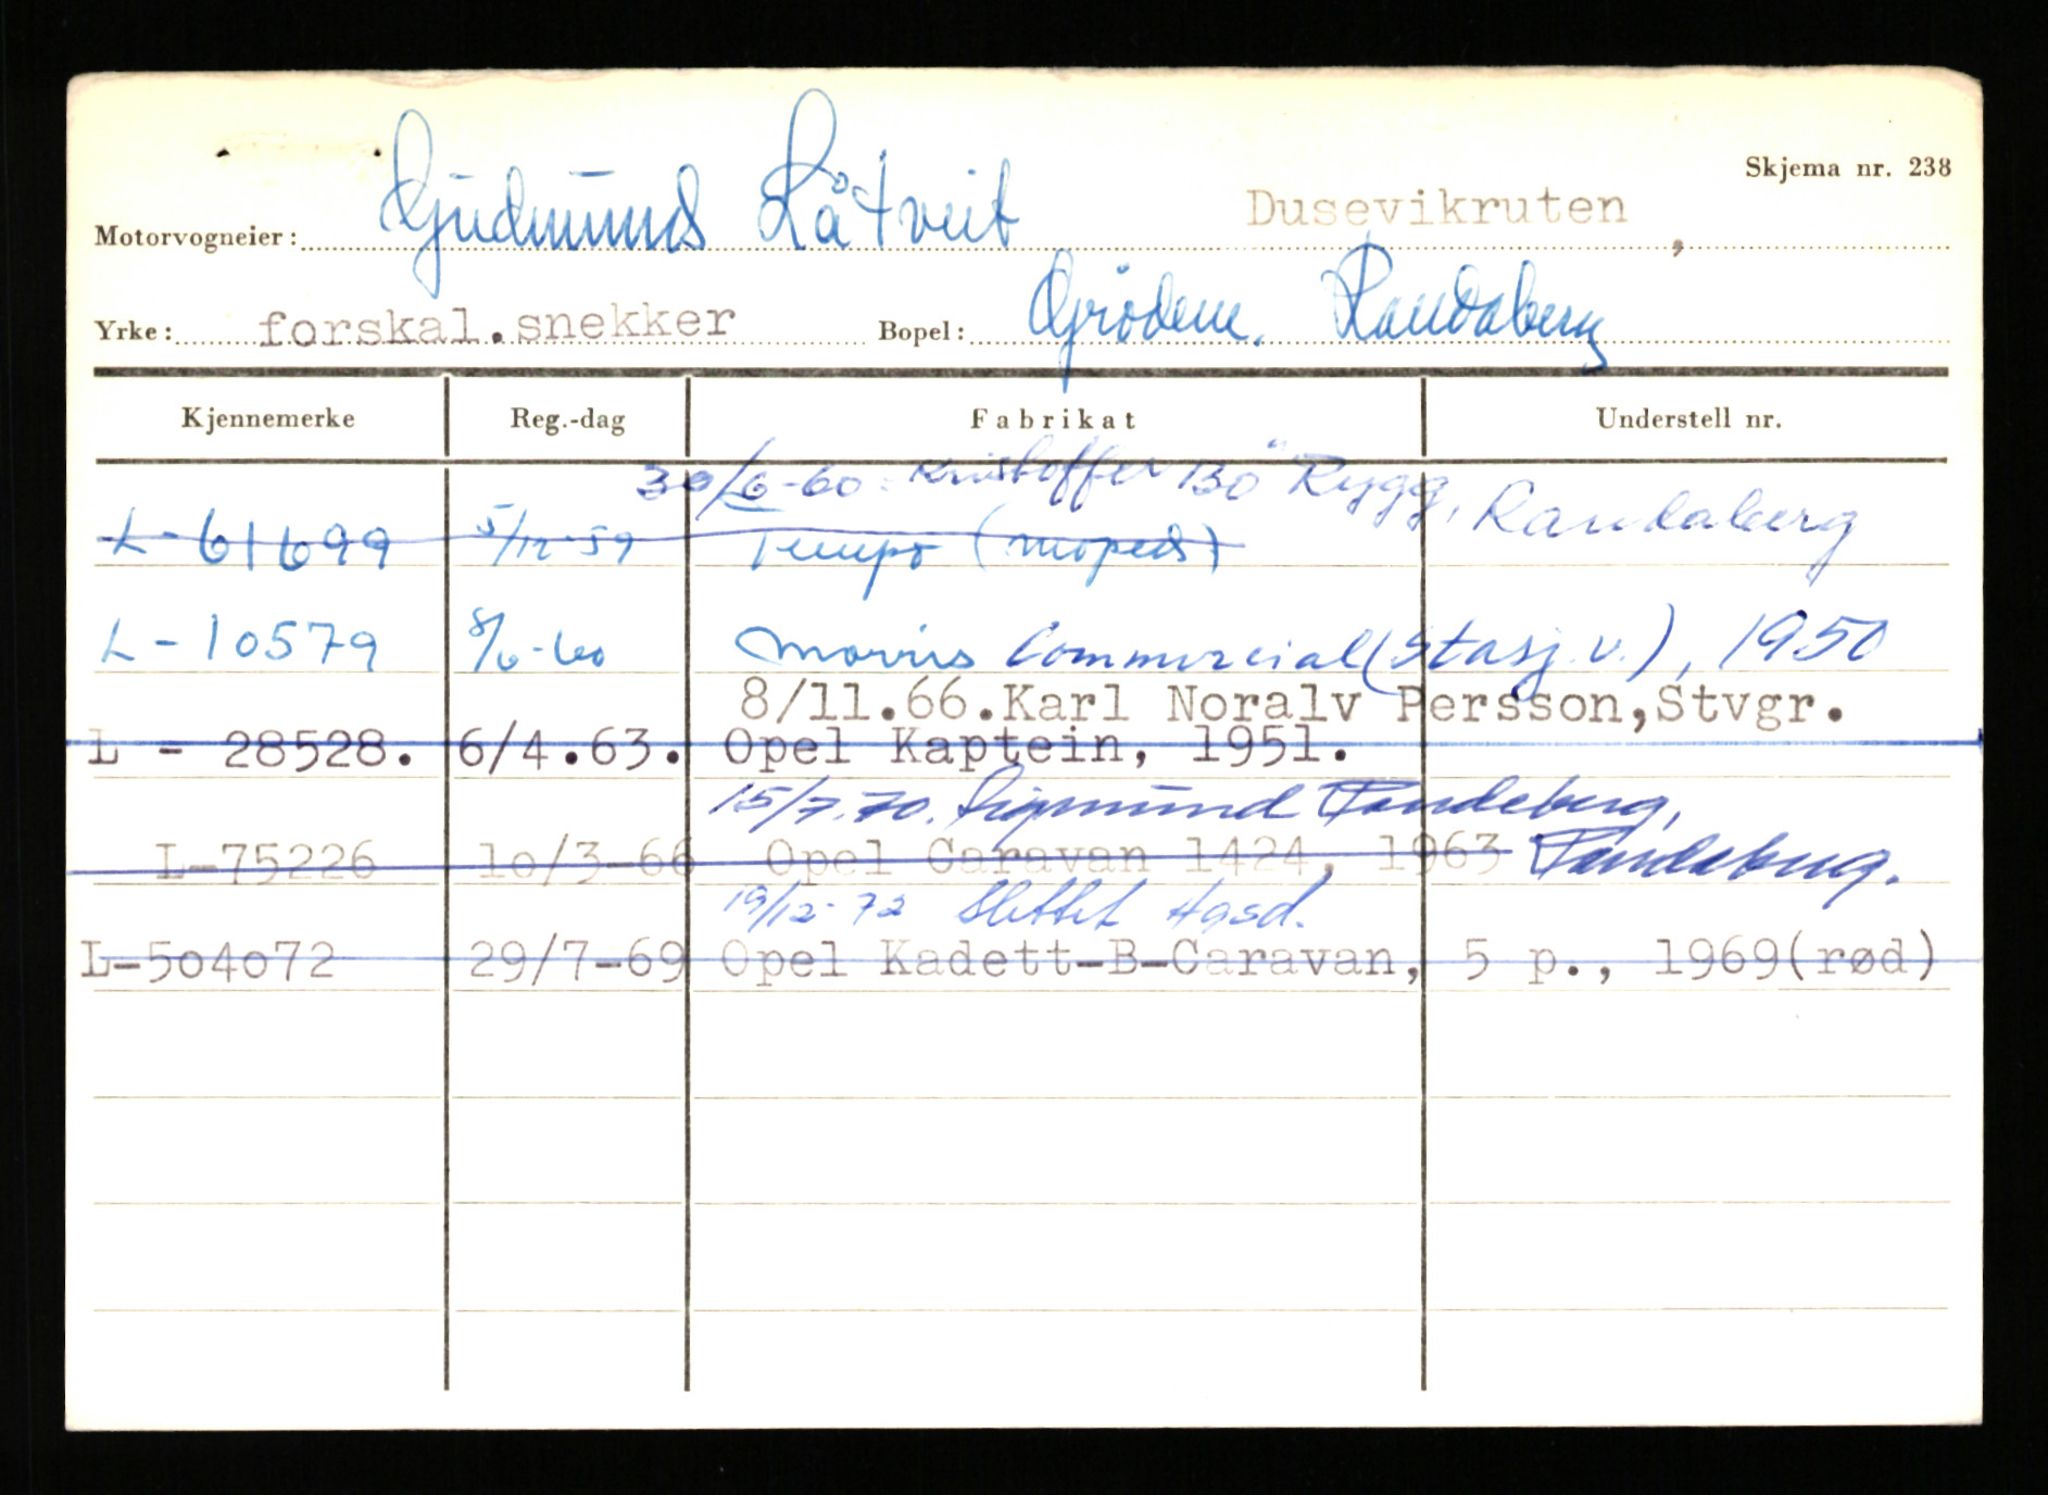 Skjema nr. 238
Motorvogneier: Gudmund Låtveit Dusevikruten,
Yrke: forskal.snekker Bopel: Grødem, Randaberg
Kjennemerke Reg.-dag Fabrikat Understell nr.
30/6-60: Kristoffer Bö Rygg, Randaberg
L-61699 5/12-59 Tempo (moped)
L-10579 8/6-60 Morris Commercial (Stasj.v.), 1950
8/11.66.Karl Noralv Persson,Stvgr.
L - 28528. 6/4.63. Opel Kaptein, 1951.
15/7.70. Sigmund
L-75226 10/3-66 Opel Caravan 1424, 1963
19/12-72 Slettet
L-504072 29/7-69 Opel Kadett-B-Caravan, 5 p., 1969(rød)